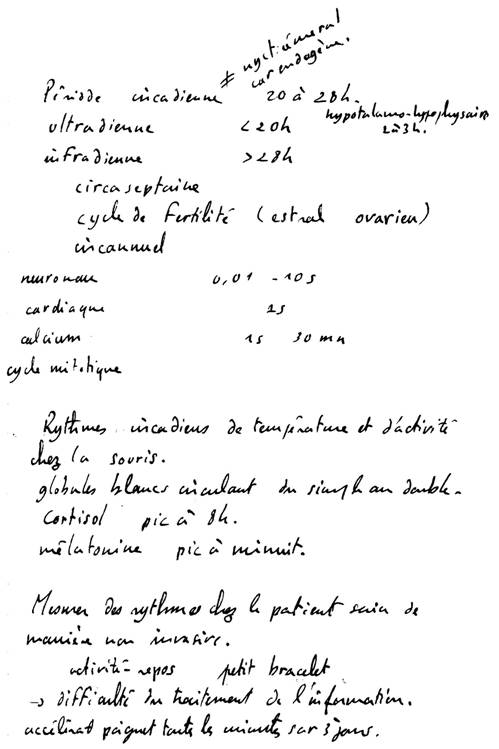 ≠ nycthéméral
car endogène.
Période circadienne 20 à 28h.
ultradienne <20h hypotalamo-hypophysaire
2 à 3h.
infradienne >28h
circaseptaine
cycle de fertilité (estral ovarien)
circannuel
neuronau 0,01 - 10s
cardiaque 1s
calcium 1s 30 mn
cycle mitotique
Rythmes circadiens de température et d'activité
chez la souris.
globules blancs circulant du simple au double.
Cortisol pic à 8h.
mélatonine pic à minuit.
Mesurer des rythmes chez le patient sain de
manière non invasive.
activité-repos petit bracelet
→ difficulté du traitement de l'information.
accélérat poignet toutes les minutes sur 3 jours.